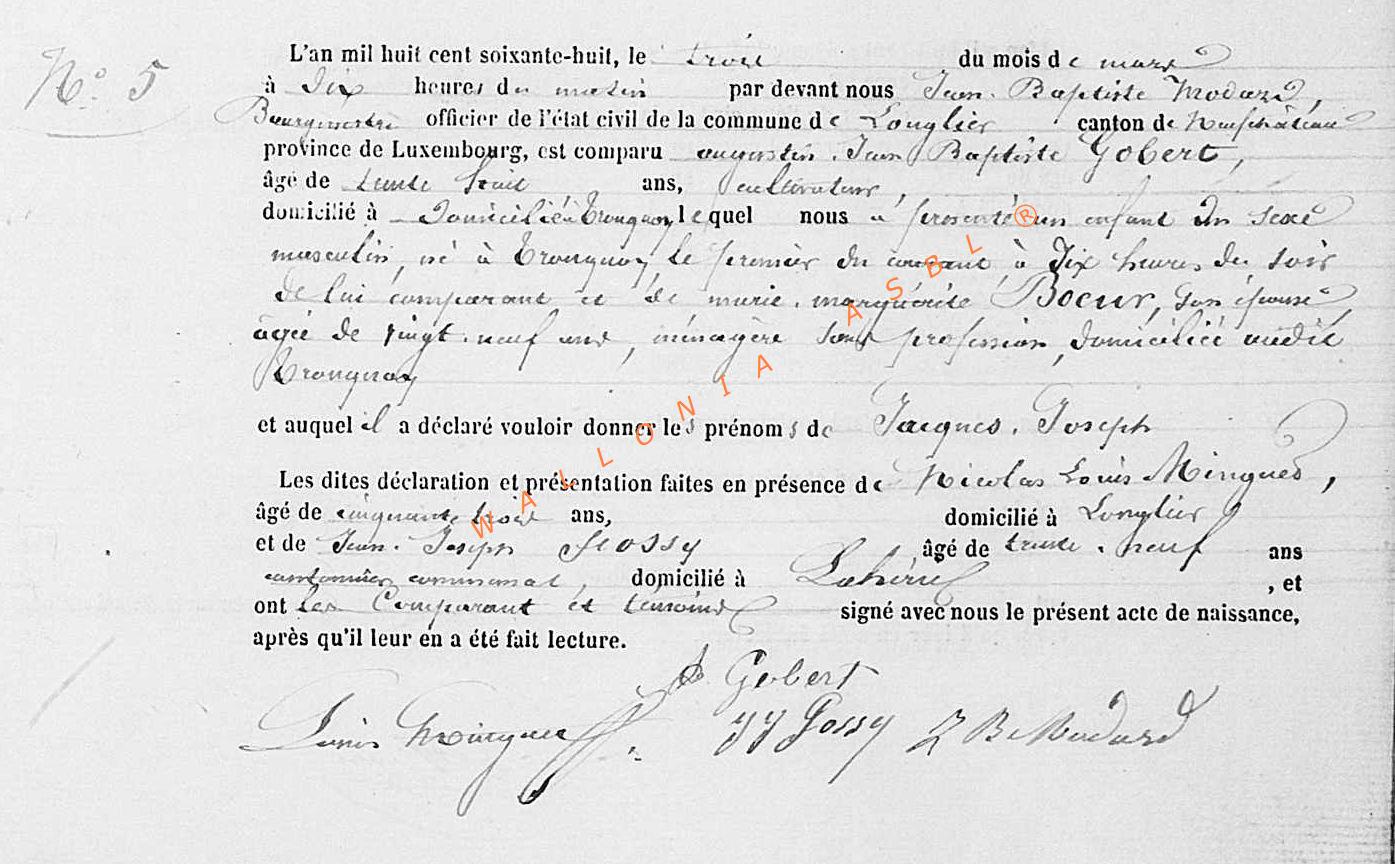 N° 5
L'an mil huit cent soixante-huit, le trois du mois de mars
à Dix heures du matin par devant nous Jean-Baptiste Modard,
Bourgmestre officier de l'état civil de la commune de Longlier canton de Neufchâteau
province de Luxembourg, est comparu augustin Jean Baptiste Gobert,
âgé de trente huit ans, cultivateur,
domicilié à Domicilié à Tronquoy lequel nous a presenté un enfant du sexe
masculin, né à Tronquoy le premier du courant à Dix heures du soir
de lui comparant et de marie marguérite Boeur, son épouse
âgée de vingt-neuf ans, ménagère sans profession, domiciliée audit
Tronquoy
et auquel il a déclaré vouloir donner les prénoms de Jacques Joseph
Les dites déclaration et présentation faites en présence de Nicolas Louis Mingues,
âgé de cinquante trois ans, domicilié à Longlier
et de Jean-Joseph âgé de trente-neuf ans
cantonnier communal, domicilié à Lahérie, et
ont les Comparant et témoins signé avec nous le présent acte de naissance,
après qu'il leur en a été fait lecture.
Gobert
Louis Mingues JJ Gossy J B Modard
WALLONIA ASBL ®